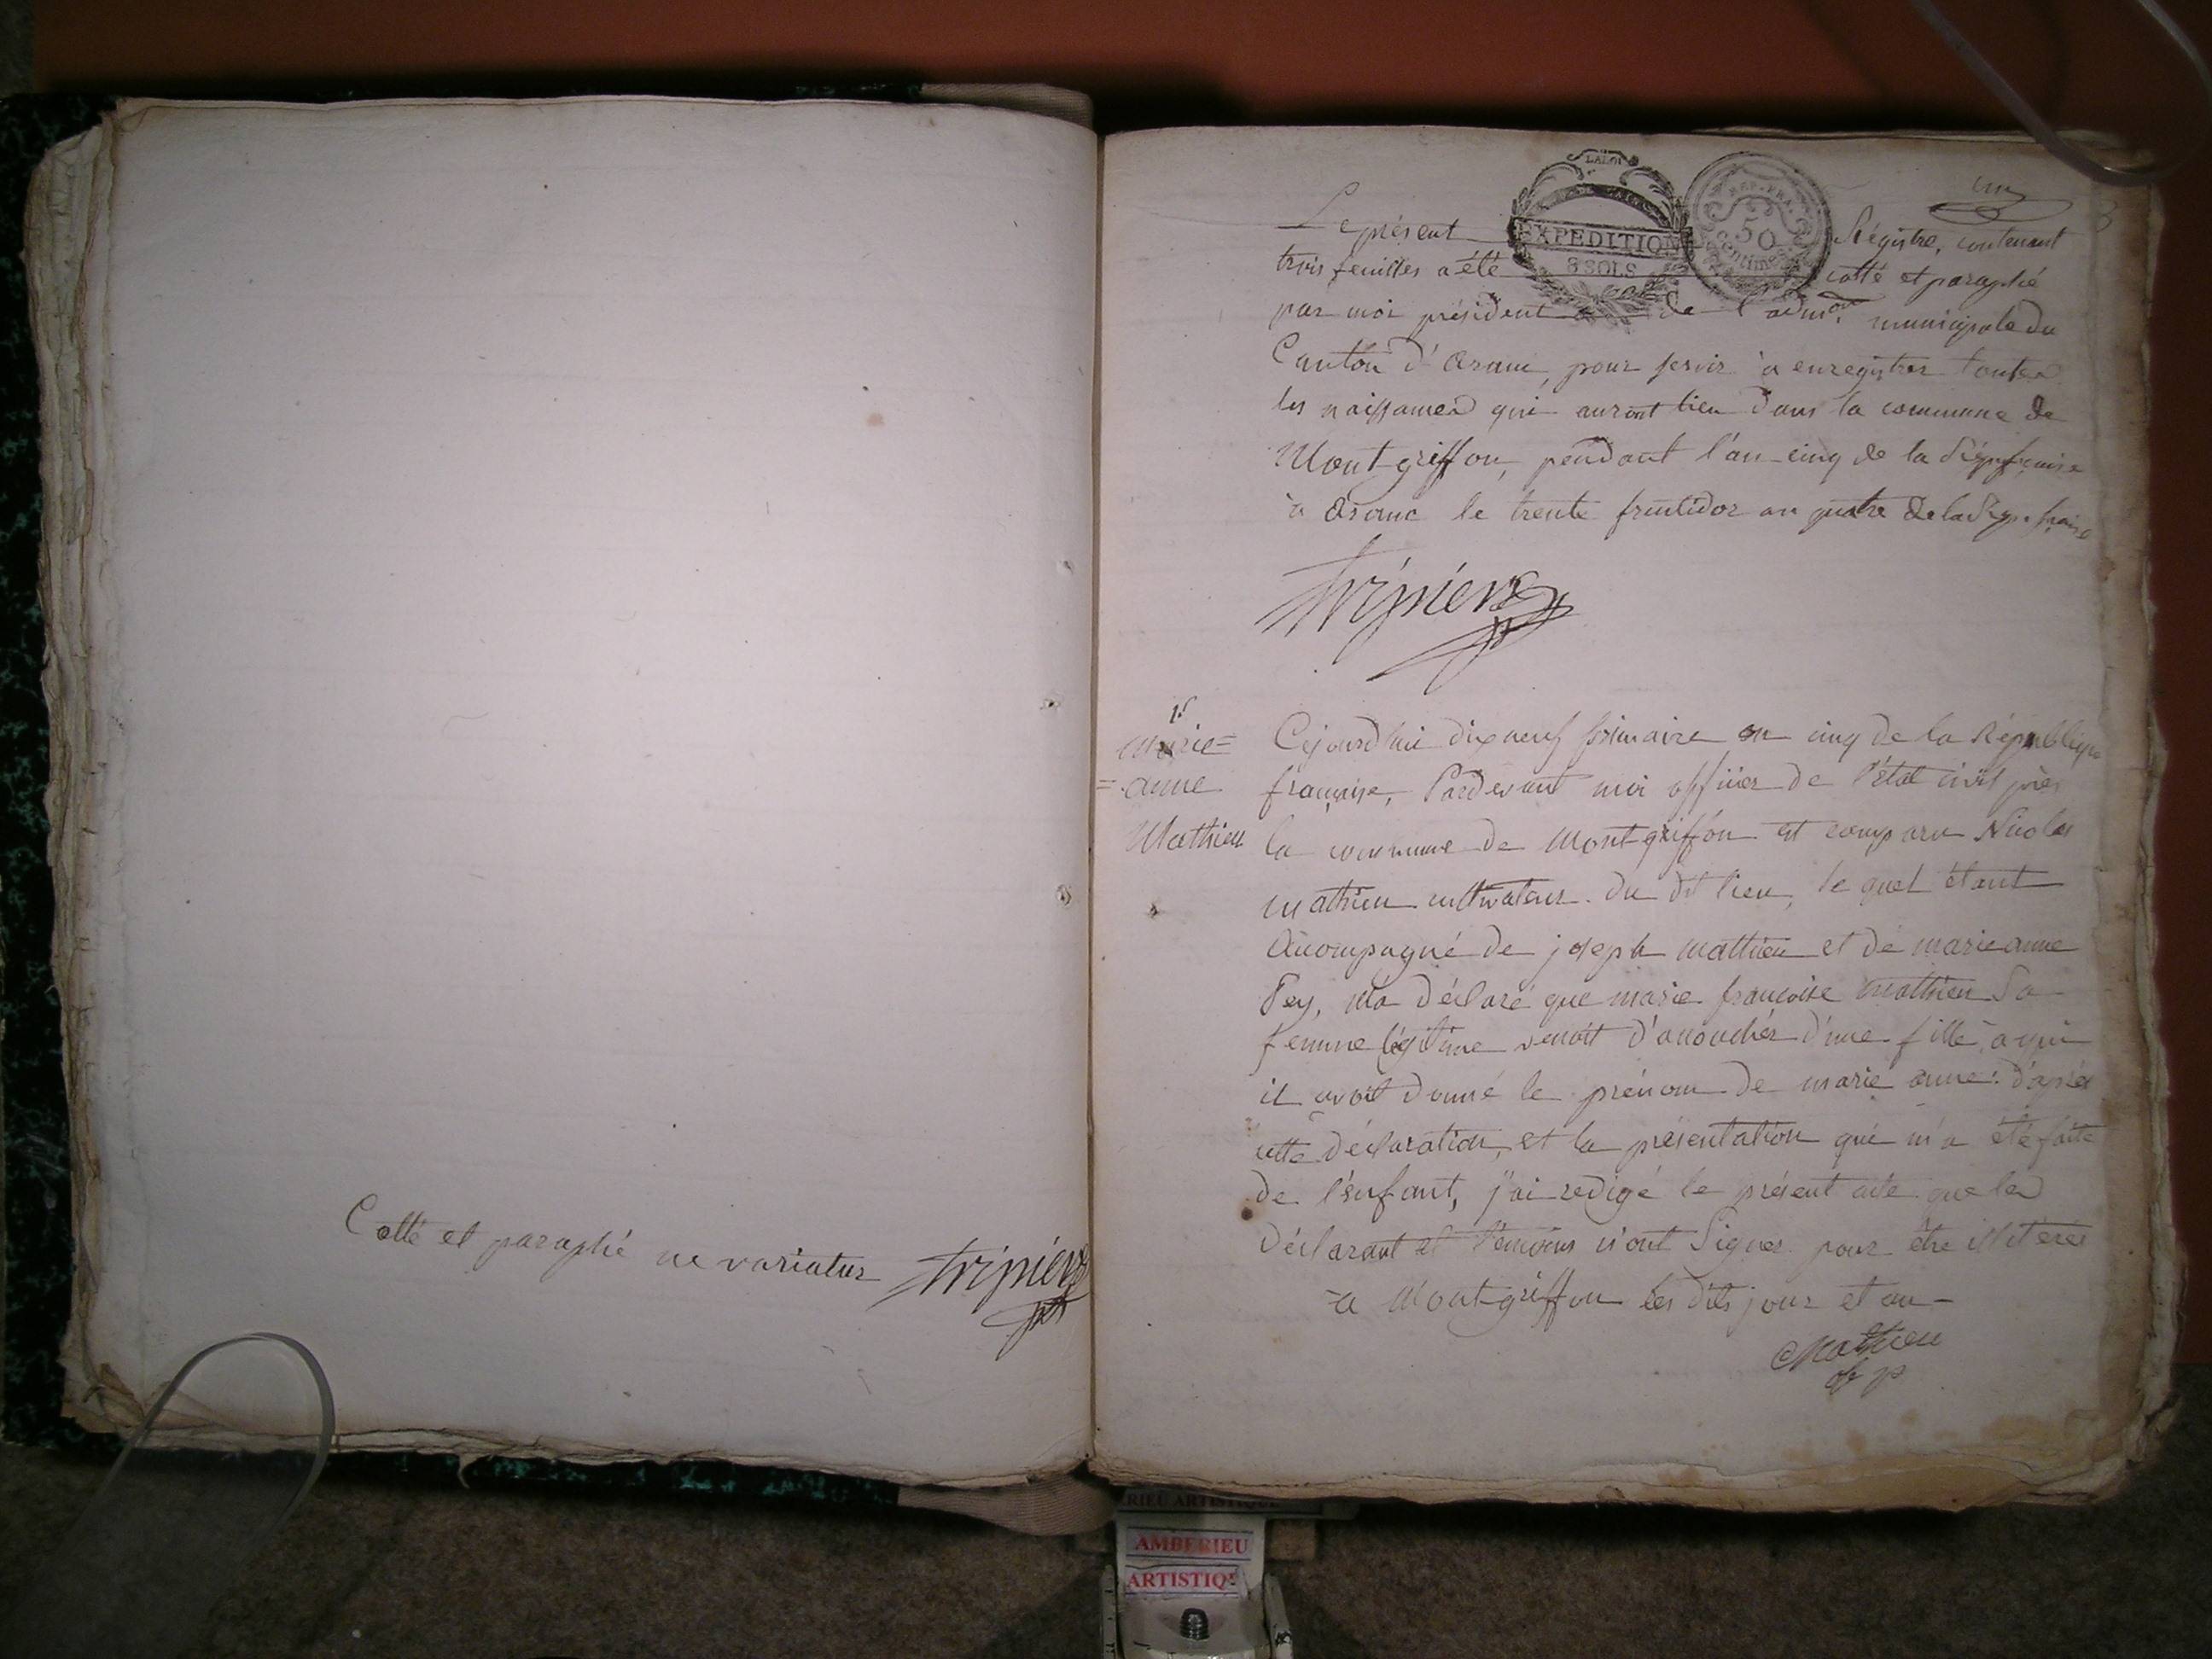 Cotté et paraphé ne varietur Tripier
LA LOI
EXPEDITION
8 SOLS
REP. FRA.
50
Centimes
un
Le présent Régistre, contenant
trois feuilles a été cotté et paraphé
par moi président de l'adm.on municipale du
Canton d'aranc, pour servir à enregistrer toutes
les naissances qui auront lieu dans la commune de
Montgriffon, pendant l'an cinq de la Rép. française
à aranc le trente fructidor an quatre de la Rép. fraise
Tripier
1.r
marie=
=anne
Mathieu
Cejourd'hui dix neuf frimaire an cinq de la République
française, Pardevant moi officier de l'état civil près
la commune de Montgriffon est comparu Nicolas
mathieu cultivateur du dit lieu, le quel étant
accompagné de joseph mathieu et de marie anne
Pey, m'a déclaré que marie françoise mathieu Sa
femme légitime venoit d'accoucher d'une fille à qui
il avoit donné le prénom de marie anne: d'après
cette déclaration, et la présentation qui m'a été faite
de l'enfant, j'ai redigé le présent acte que les
Déclarant et témoins n'ont Signer pour être illitérés
à Montgriffon les dits jour et an-
Mathieu
AMBERIEU
ARTISTIQUE